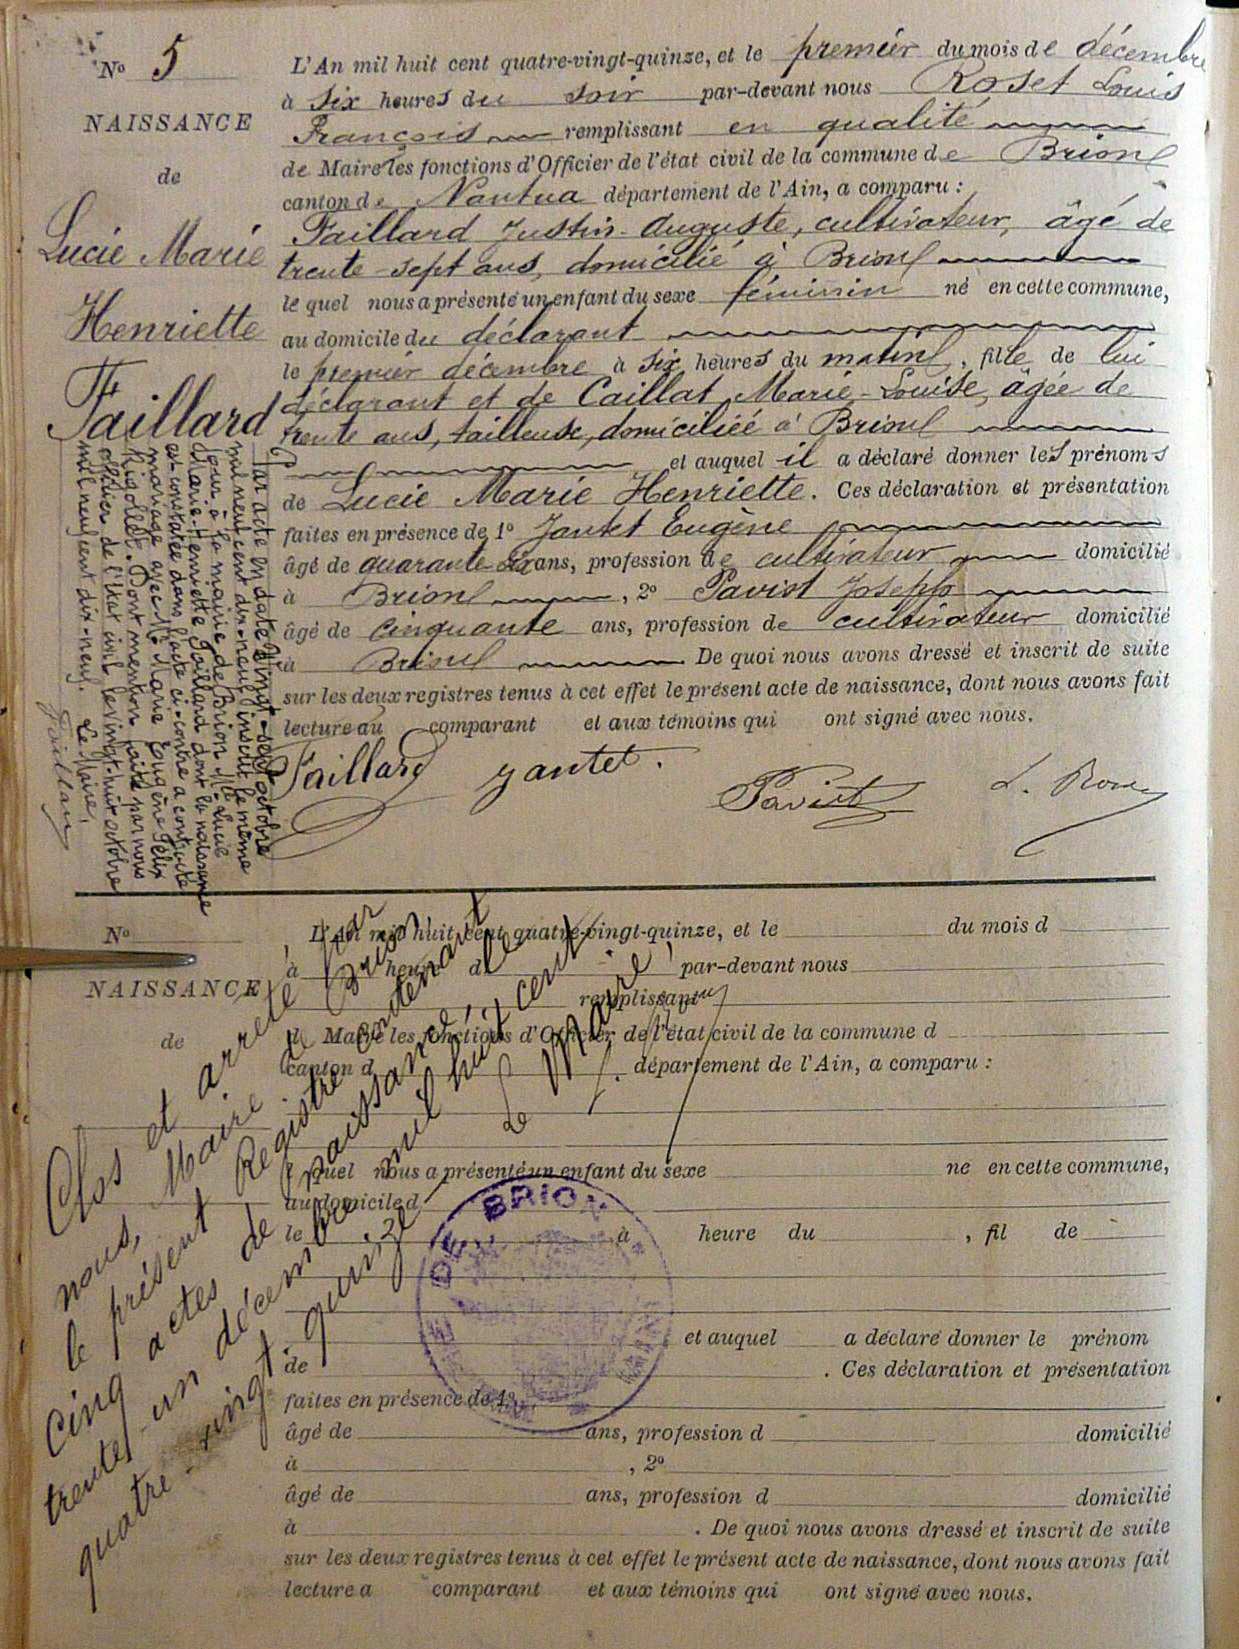 N° 5
NAISSANCE
de
Lucie Marie
Henriette
Faillard
L'An mil huit cent quatre-vingt-quinze, et le premier du mois de décembre
à six heures du soir par-devant nous Roset Louis
François remplissant en qualité
de Maire les fonctions d'Officier de l'état civil de la commune de Brion
canton de Nantua département de l'Ain, a comparu :
Faillard Justin-Auguste, cultivateur, âgé de
trente-sept ans, domicilié à Brion
le quel nous a présenté un enfant du sexe féminin né en cette commune,
au domicile du déclarant
le premier décembre à six heures du matin, fille de lui
déclarant et de Caillat Marie-Louise, âgée de
trente ans, tailleuse, domiciliée à Brion
et auquel il a déclaré donner les prénoms
de Lucie Marie Henriette. Ces déclaration et présentation
faites en présence de 1° Jantet Eugène
âgé de quarante-six ans, profession de cultivateur domicilié
à Brion, 2° Paviot Joseph
âgé de cinquante ans, profession de cultivateur domicilié
à Brion De quoi nous avons dressé et inscrit de suite
sur les deux registres tenus à cet effet le présent acte de naissance, dont nous avons fait
lecture au comparant et aux témoins qui ont signé avec nous.
Faillard Jantet. Paviot L. Roset
Par acte en date vingt-sept octobre
mil neuf cent dix-neuf inscrit le même
jour à la mairie de Brion Mlle Lucie
Marie-Henriette Faillard dont la naissance
est constatée dans l'acte ci-contre a contracté
mariage avec Mr Marie Eugène Félix
Rigollet. Dont mention faite par nous
officier de l'état civil le vingt-huit octobre
mil neuf cent dix-neuf. Le Maire,
Faillard
N°
NAISSANCE
de
L'An mil huit cent quatre-vingt-quinze, et le du mois d
à heure d par-devant nous
remplissant
d Maire les fonctions d'Officier de l'état civil de la commune d
canton d département de l'Ain, a comparu :
l quel nous a présenté un enfant du sexe né en cette commune,
au domicile d
le à heure du , fil de
et auquel a déclaré donner le prénom
de . Ces déclaration et présentation
faites en présence de 1°
âgé de ans, profession d domicilié
à , 2°
âgé de ans, profession d domicilié
à . De quoi nous avons dressé et inscrit de suite
sur les deux registres tenus à cet effet le présent acte de naissance, dont nous avons fait
lecture a comparant et aux témoins qui ont signé avec nous.
Clos et arrêté par
nous, Maire de Brion,
le présent Registre contenant
cinq actes de naissance, le
trente-un décembre mil huit cent
quatre-vingt-quinze.
Le Maire,
L. Roset
DE BRION